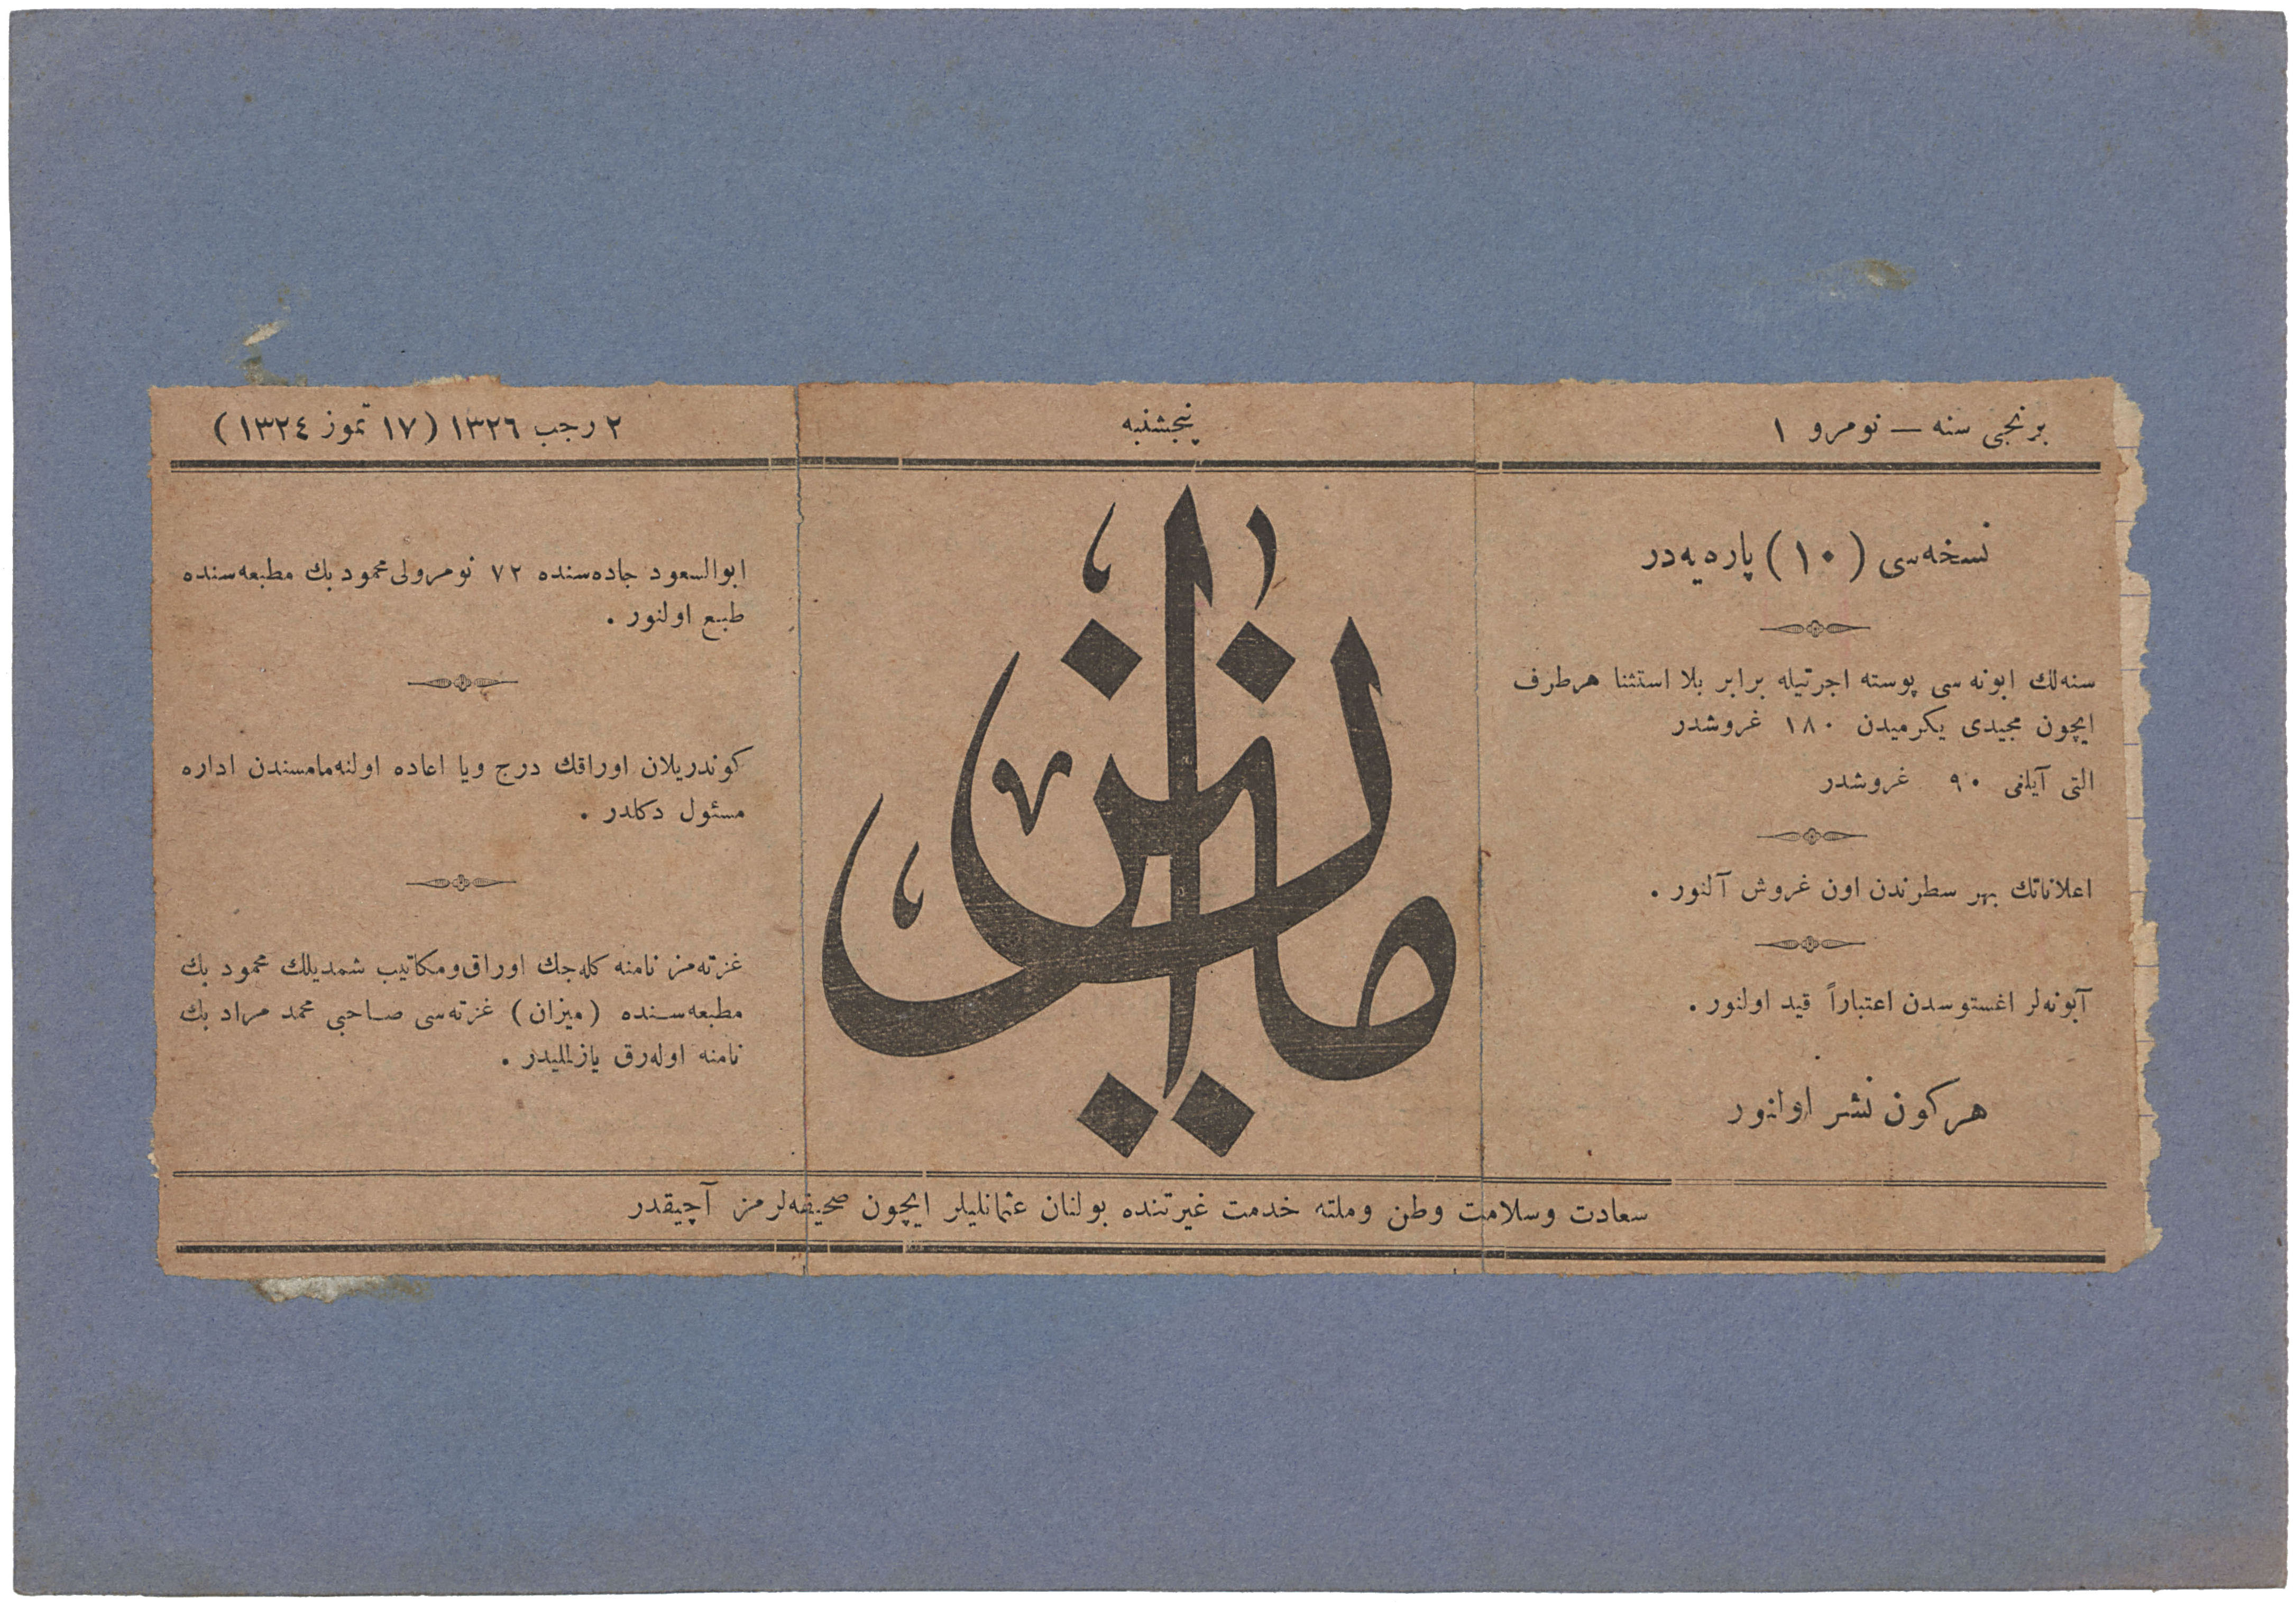 برنجی سنه — نومرو ١
پنجشنبه
٢ رجب ١٣٢٦ (١٧ تموز ١٣٢٤)
نسخه‌سی (١٠) پاره‌یه‌در
سنه‌لك ابونه سی پوسته اجرتیله برابر بلا استثنا هرطرف
ایچون مجیدی یكرمیدن ١٨٠ غروشدر
التی آیلغی ٩٠ غروشدر
اعلاناتك بهر سطرندن اون غروش آلنور .
آبونه‌لر اغستوسدن اعتباراً قید اولنور .
هركون نشر اولنور
میزان
ابوالسعود جاده‌سنده ٧٢ نومرولی محمود بك مطبعه‌سنده
طبع اولنور .
كوندریلان اوراقك درج ویا اعاده اولنه‌مامسندن اداره
مسئول دكلدر .
غزته‌مز نامنه كله‌جك اوراق ومكاتیب شمدیلك محمود بك
مطبعه‌سنده (میزان) غزته‌سی صاحبی محمد مراد بك
نامنه اوله‌رق یازلملیدر .
سعادت وسلامت وطن وملته خدمت غیرتنده بولنان عثمانلیلر ایچون صحیفه‌لرمز آچیقدر